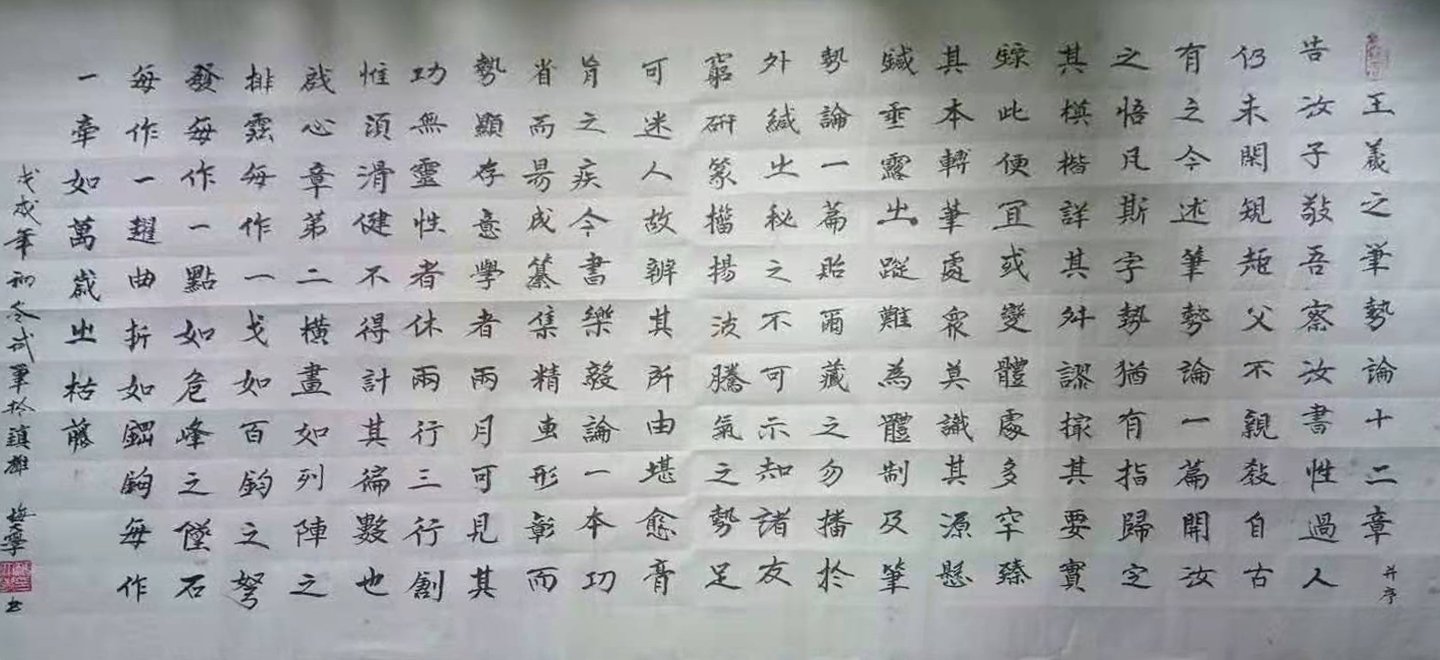 王羲之筆勢論十二章 并序
告汝子敬吾察汝書性過人
仍未閑規矩父不親教自古
有之今述筆勢論一篇開汝
之悟凡斯字勢猶有指歸定
其模楷詳其舛謬撮其要實
錄此便宜或變體處多罕臻
其本轉筆處眾莫識其源懸
鍼垂露之蹤難為體制及筆
勢論一篇貽爾藏之勿播於
外緘之秘之不可示知諸友
窮研篆揚波騰氣之勢足
可迷人故辨其所由堪愈膏
肓之疾今書樂毅論一本功
省而易成纂集精專形彰而
勢顯存意學者兩月可見其
功無靈性者休兩行三行創
惟須滑健不得計其徧數也
啟心章第二橫畫如列陣之
排雲每作一戈如百鈞之弩
發每作一點如危峰之墜石
每作一曲折如鋼鉤每作
一牽如萬歲之枯藤
戊戌年初冬試筆於鎮雄